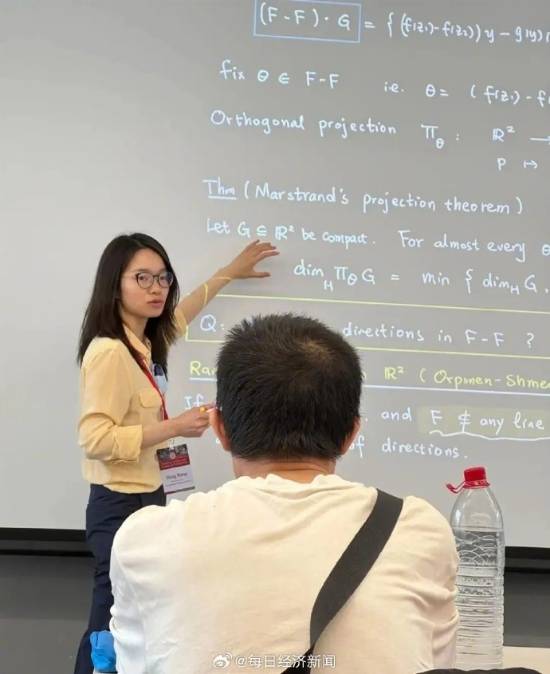 (F-F)·G = { (f(z₁)-f(z₂))y - g(y)
fix θ ∈ F-F i.e. θ = (f(z₁)-f
Orthogonal projection Π_θ : ℝ² →
p ↦
Thm (Marstrand's projection theorem)
Let G ⊆ ℝ² be compact. For almost every θ
dim_H Π_θ G = min { dim_H G,
Q: directions in F-F ?
ℝ² (Orpmen-Shme
If and F ⊄ any line
of directions.
Hong Wang
@每日经济新闻